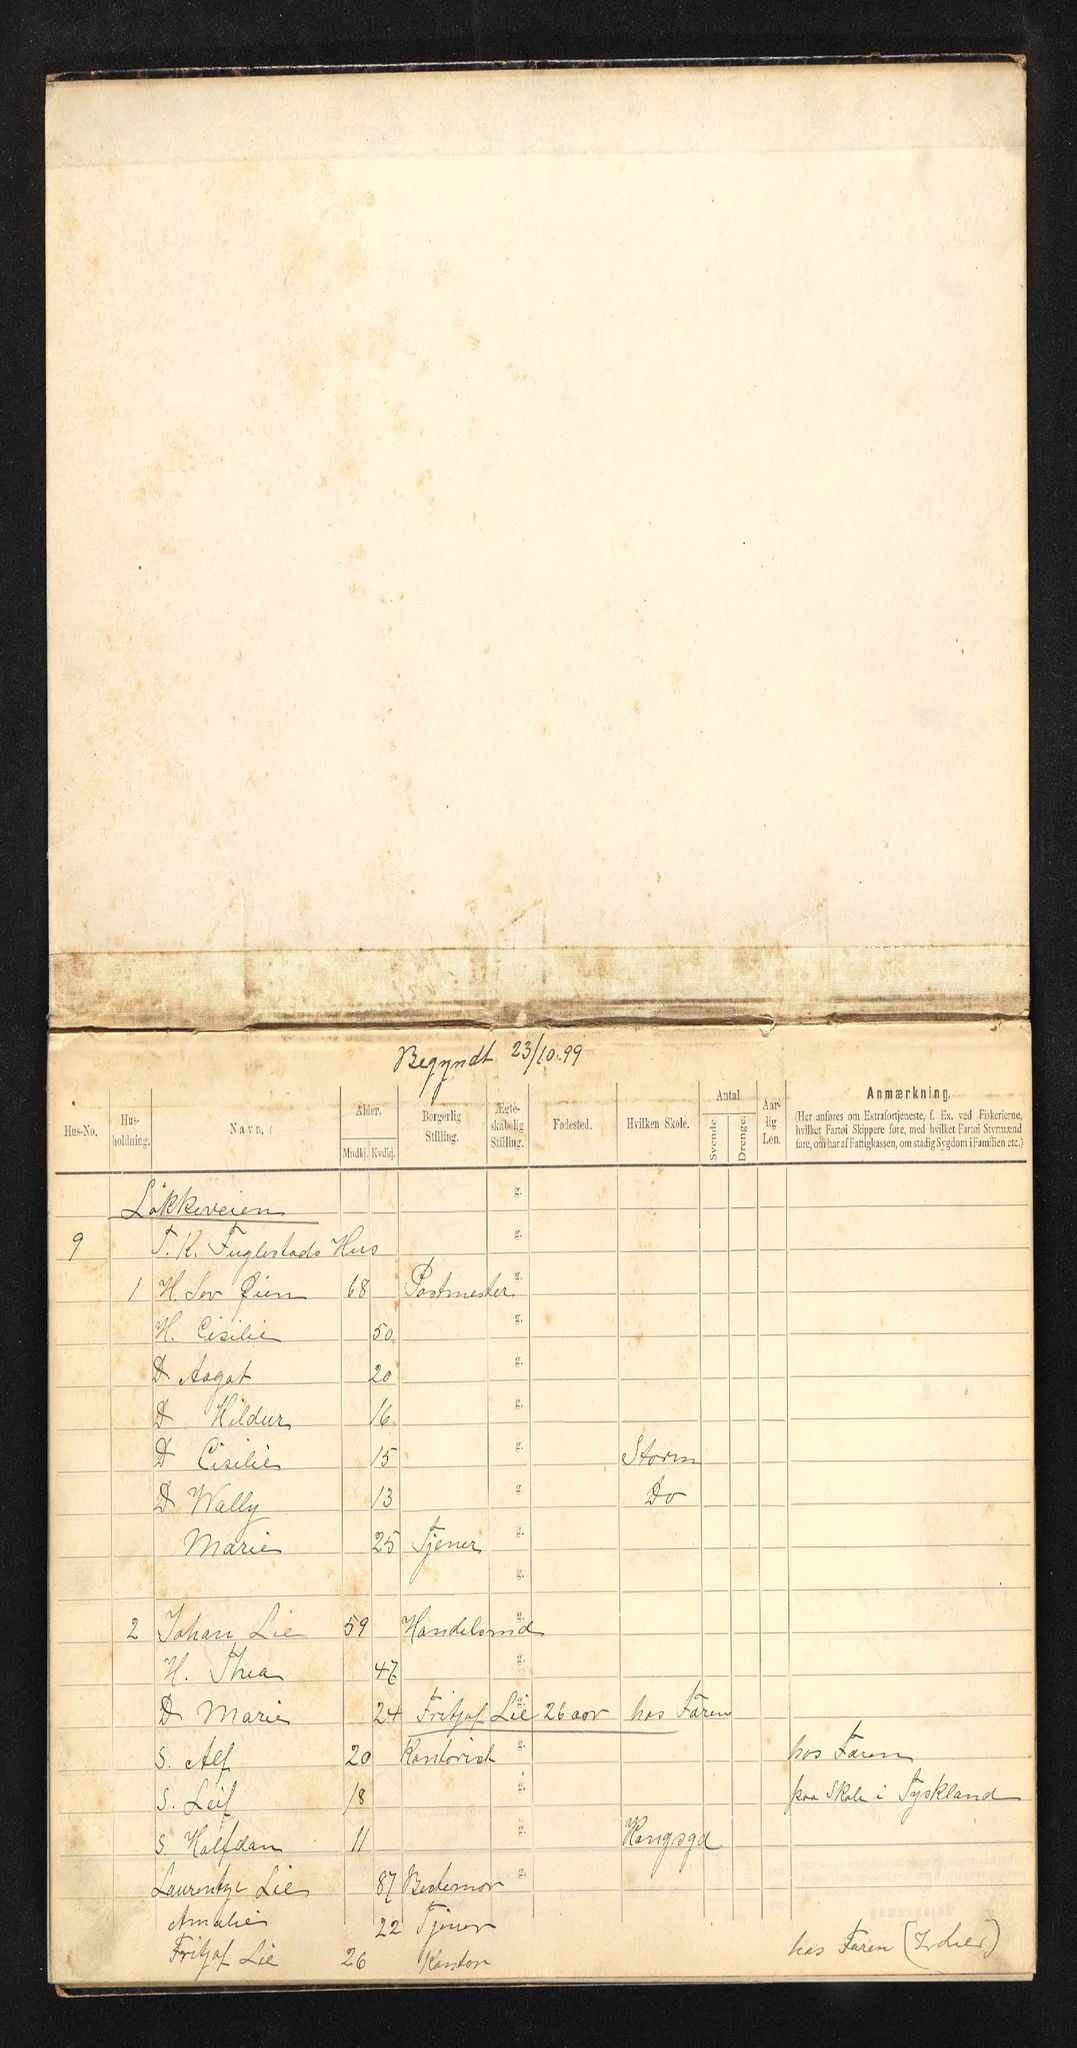 Begyndt 23/10.99
Hus-No. Hus-holdning. Navn. Alder. Mndkj. Kvdkj. Borgerlig Stilling. Ægte-skabelig Stilling. Fødested. Hvilken Skole. Antal Svende. Drenge. Aar-lig Len. Anmærkning.
(Her anføres om Extrafortjeneste, f. Ex. ved Fiskerierne,
hvilket Fartøi Skippere føre, med hvilket Fartøi Styrmænd
fare, om har af Fattigkassen, om stadig Sygdom i Familien etc.)
Løkkeveien g.
9 T. K. Fuglestads Hus g.
1 H. Sev Øien 68 Postmester g.
H. Cisilie 50 g.
D Aagat 20 g.
D Hildur 16 g.
D Cisilie 15 g. Storm
D Wally 13 g. Do
Marie 25 Tjener g.
g.
2 Johan Lie 59 Handelsmd g.
H. Thea 47 g.
D Marie 24 Fritjof Lie g. 26 aar hos Faren
S. Alf 20 Kontorist g. hos Faren
S. Leif 18 g. paa Skole i Tyskland
S Halfdan 11 g. Kongsgd
Laurentze Lie 87 Bestemor g.
Amalie 22 Tjener
Fritjof Lie 26 Kontor hos Faren